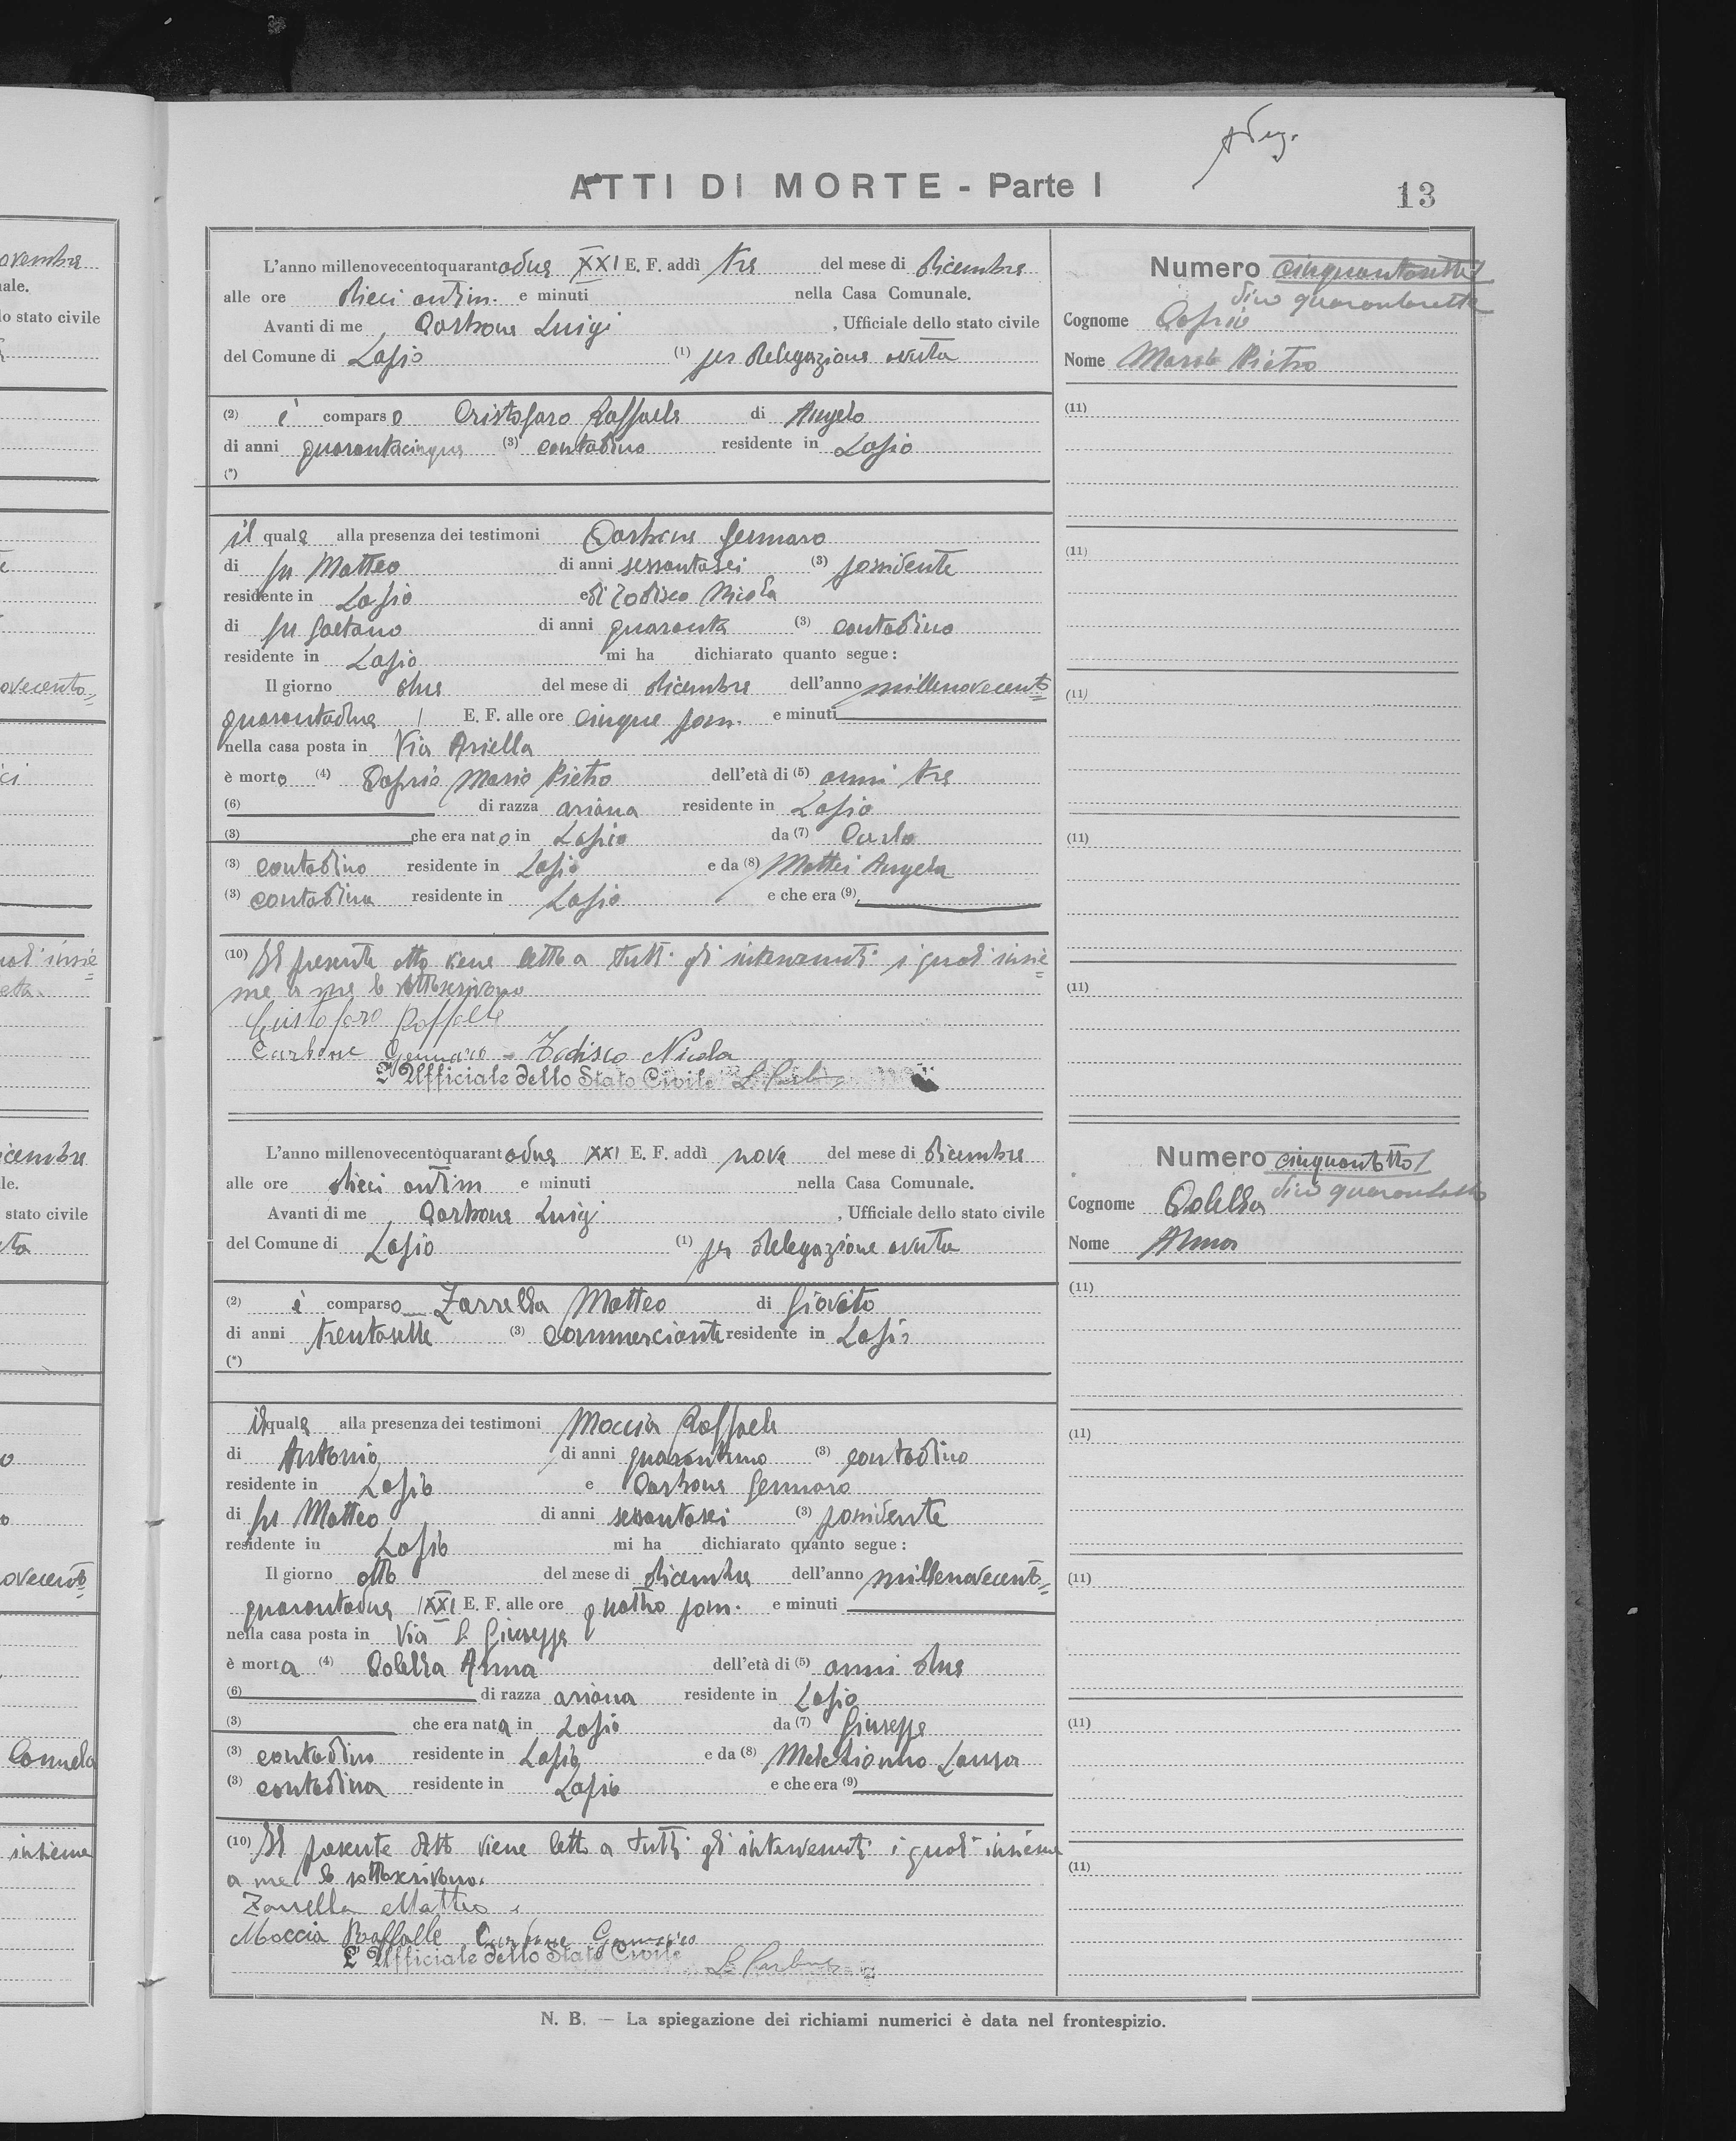 ATTI DI MORTE - Parte I
13
L'anno millenovecentoquarantadue XXI E. F. addì tre del mese di dicembre
alle ore dieci antim. e minuti nella Casa Comunale.
Avanti di me Carbone Luigi , Ufficiale dello stato civile
del Comune di Lapio (1) per delegazione avuta
(2) è comparso Cristofaro Raffaele di Angelo
di anni quarantacinque (3) contadino residente in Lapio
(*)
il quale alla presenza dei testimoni Carbone Gennaro
di fu Matteo di anni sessantasei (3) possidente
residente in Lapio e di Todisco Nicola
di fu Gaetano di anni quaranta (3) contadino
residente in Lapio mi ha dichiarato quanto segue:
Il giorno due del mese di dicembre dell'anno millenovecento=
quarantadue E. F. alle ore cinque pom. e minuti
nella casa posta in Via Ariella
è morto (4) Caprio Mario Pietro dell'età di (5) anni tre
(6) di razza ariana residente in Lapio
(3) che era nato in Lapio da (7) Carlo
(3) contadino residente in Lapio e da (8) Mattei Angela
(3) contadina residente in Lapio e che era (9)
(10) Il presente atto viene letto a tutti gli intervenuti i quali insie=
me a me lo sottoscrivono
Cristofaro Raffaele
Carbone Gennaro - Todisco Nicola
L'Ufficiale dello Stato Civile
Numero cinquantasette
dico quarantasette
Cognome Caprio
Nome Mario Pietro
(11)
(11)
(11)
(11)
(11)
L'anno millenovecentoquarantadue XXI E. F. addì nove del mese di dicembre
alle ore dieci antim e minuti nella Casa Comunale.
Avanti di me Carbone Luigi , Ufficiale dello stato civile
del Comune di Lapio (1) per delegazione avuta
(2) è comparso Zarrella Matteo di Giovito
di anni trentasette (3) commerciante residente in Lapio
(*)
il quale alla presenza dei testimoni Moccia Raffaele
di Antonio di anni quarantuno (3) contadino
residente in Lapio e Carbone Gennaro
di fu Matteo di anni sessantasei (3) possidente
residente in Lapio mi ha dichiarato quanto segue:
Il giorno otto del mese di dicembre dell'anno millenovecento=
quarantadue XXI E. F. alle ore quattro pom. e minuti
nella casa posta in Via S. Giuseppe
è morta (4) Colella Anna dell'età di (5) anni due
(6) di razza ariana residente in Lapio
(3) che era nata in Lapio da (7) Giuseppe
(3) contadino residente in Lapio e da (8) Melchionno Laura
(3) contadina residente in Lapio e che era (9)
(10) Il presente Atto viene letto a tutti gli intervenuti i quali insieme
a me lo sottoscrivono.
Zarrella Matteo
Moccia Raffaele Carbone Gennaro
L'Ufficiale dello Stato Civile
Numero cinquantotto
dico quarantotto
Cognome Colella
Nome Anna
(11)
(11)
(11)
(11)
(11)
N. B. — La spiegazione dei richiami numerici è data nel frontespizio.